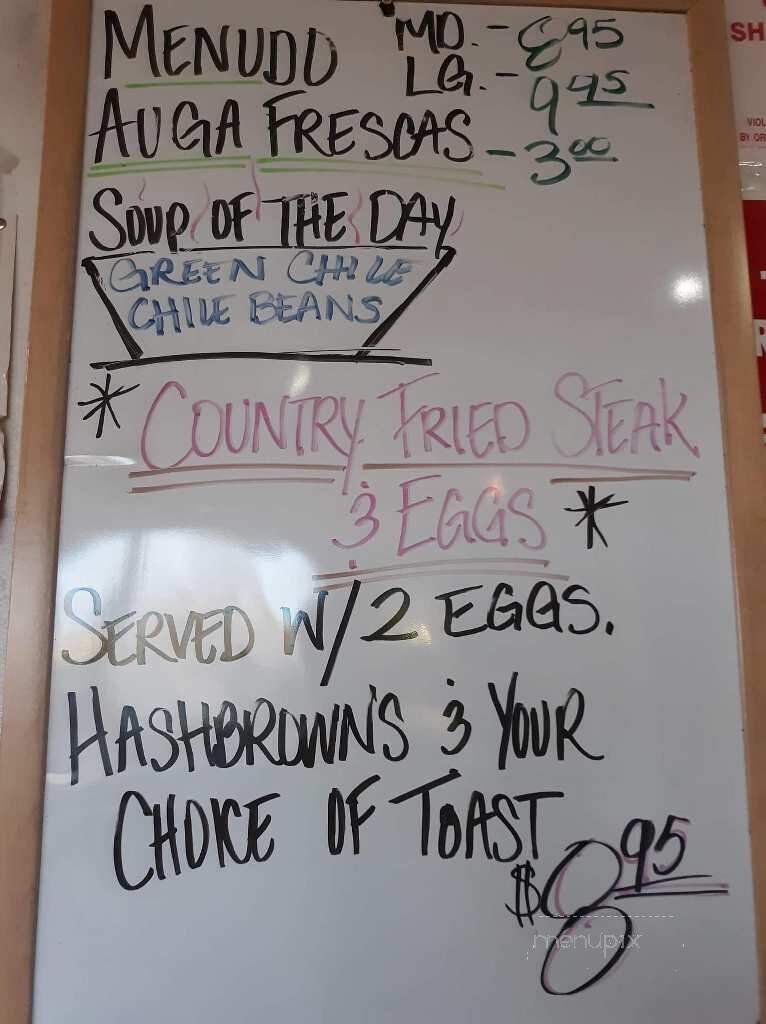 MENUDO MD. - 8 95
LG. - 9 95
AUGA FRESCAS - 3 00
SOUP OF THE DAY
GREEN CHILE
CHILE BEANS
* COUNTRY FRIED STEAK
& EGGS *
SERVED W/ 2 EGGS.
HASHBROWN'S & YOUR
CHOICE OF TOAST
$8 95
menupix
SH
VIOL
BY OR
R